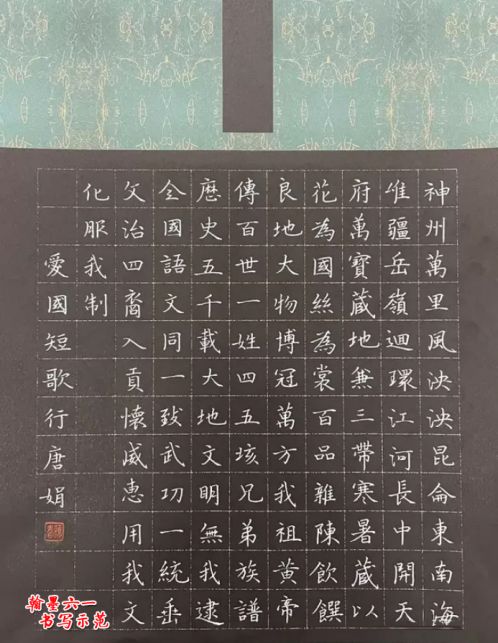 神州萬里風泱泱昆侖東南海
唯疆岳嶺迴環江河長中開天
府萬寶蔵地兼三帶寒暑蔵以
花為國絲為裳百品雜陳飲饌
良地大物博冠萬方我祖黃帝
傳百世一姓四五垓兄弟族譜
歷史五千載大地文明無我逮
全國語文同一致武功一統垂
文治四裔入貢懷威惠用我文
化服我制
愛國短歌行唐娟
翰墨六一
书写示范